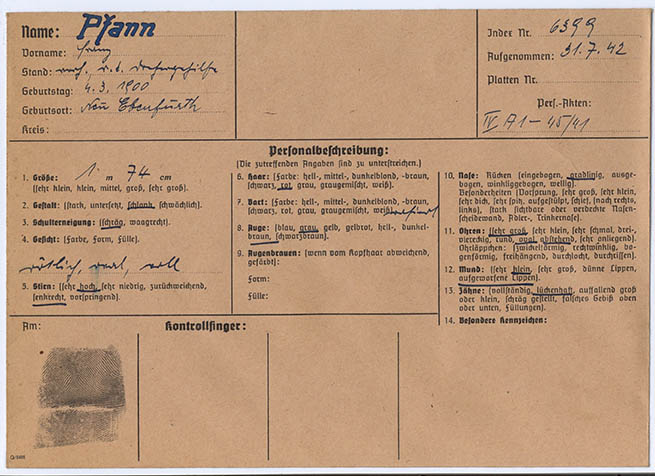 Name: Pfann
Vorname: Franz
Stand: verh., r.k. Drehergehilfe
Geburtstag: 4.3.1900
Geburtsort: Neu Ebenfurth
Kreis:
Index Nr. 6399
Aufgenommen: 31.7.42
Platten Nr.
Pers.-Akten:
IV A1 - 45/41
Personalbeschreibung:
(Die zutreffenden Angaben sind zu unterstreichen.)
1. Größe: 1 m 74 cm
(sehr klein, klein, mittel, groß, sehr groß).
2. Gestalt: (stark, untersetzt, schlank, schwächlich).
3. Schulterneigung: (schräg, waagrecht).
4. Gesicht: (Farbe, Form, Fülle).
rötlich, oval, voll
5. Stirn: (sehr hoch, sehr niedrig, zurückweichend,
senkrecht, vorspringend).
6. Haar: (Farbe: hell-, mittel-, dunkelblond, -braun,
schwarz, rot, grau, graugemischt, weiß).
7. Bart: (Farbe: hell-, mittel-, dunkelblond, -braun,
schwarz, rot, grau, graugemischt, weiß).
8. Auge: (blau, grau, gelb, gelbrot, hell-, dunkel-
braun, schwarzbraun).
9. Augenbrauen: (wenn vom Kopfhaar abweichend,
gefärbt):
Form:
Fülle:
10. Nase: Rücken (eingebogen, gradlinig, ausge-
bogen, winkliggebogen, wellig).
Besonderheiten (Vorsprung, sehr groß, sehr klein,
sehr dick, sehr spitz, aufgestülpt, schief, (nach rechts,
links), stark sichtbare oder verdeckte Nasen-
scheidewand, Adler-, Trinkernase).
11. Ohren: (sehr groß, sehr klein, sehr schmal, drei-,
viereckig, rund, oval, abstehend, sehr anliegend).
Ohrläppchen: (zwickelförmig, rechtwinklig, bo-
genförmig, freihängend, durchlocht, durchrissen).
12. Mund: (sehr klein, sehr groß, dünne Lippen,
aufgeworfene Lippen).
13. Zähne: (vollständig, lückenhaft, auffallend groß
oder klein, schräg gestellt, falsches Gebiß oben
oder unten, Füllungen).
14. Besondere Kennzeichen:
Am:
Kontrollfinger: